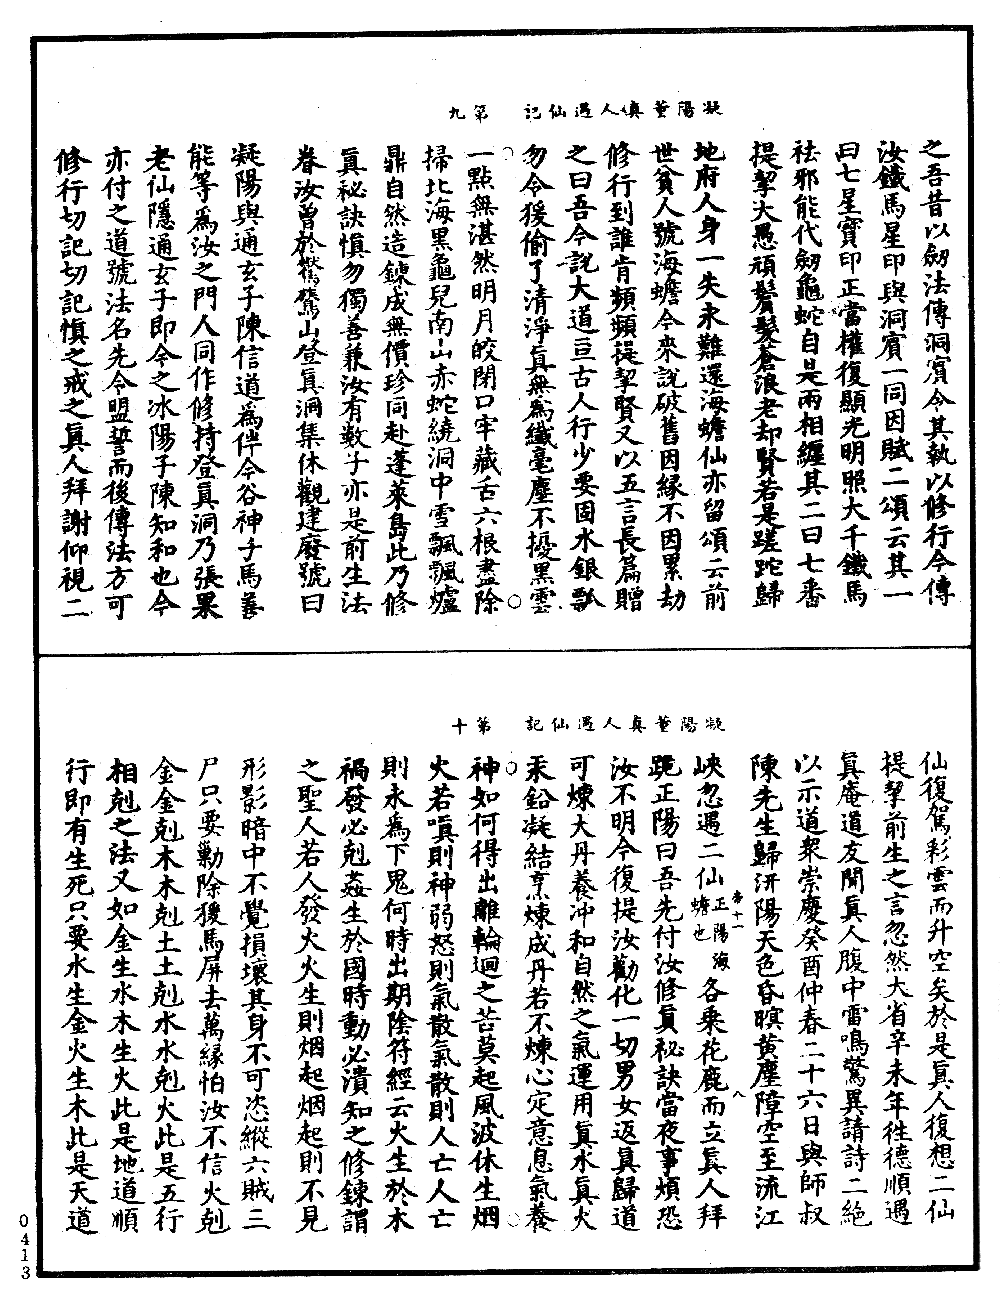 凝陽董真人遇仙記　第九
之吾昔以劒法傳洞賓今其執以修行今傳
汝鐵馬星印與洞賓一同因賦二頌云其一
曰七星寶印正當權復顯光明照大千鐵馬
祛邪能代劒龜蛇自是兩相纏其二曰七番
提挈大愚頑鬢髮蒼浪老却賢若是蹉跎歸
地府人身一失永難還海蟾仙亦留頌云前
世貧人號海蟾今來說破舊因緣不因累劫
修行到誰肯頻頻提挈賢又以五言長篇贈
之曰吾今說大道亘古人行少要固水銀瓢
勿令猨偷了清淨真無為纖毫塵不擾黑雲
一點無湛然明月皎閉口牢藏舌六根盡除
掃北海黑龜兒南山赤蛇繞洞中雪飄飄爐
鼎自然造鍊成無價珍同赴蓬萊島此乃修
真秘訣慎勿獨善兼汝有數子亦是前生法
眷汝曾於鷲鷲山登真洞集休觀建廢號曰
凝陽與通玄子陳信道為伴今谷神子馬善
能等為汝之門人同作修持登真洞乃張果
老仙隱通玄子即今之冰陽子陳知和也今
亦付之道號法名先令盟誓而後傳法方可
修行切記切記慎之戒之真人拜謝仰視二
凝陽董真人遇仙記　第十
仙復駕彩雲而升空矣於是真人復想二仙
提挈前生之言忽然大省辛未年徃德順遇
真庵道友聞真人腹中雷鳴驚異請詩二絕
以示道衆崇慶癸酉仲春二十六日與師叔
陳先生歸汧陽天色昏暝黃塵障空至流江
峽忽遇二仙正陽海蟾也各乘花鹿而立真人拜
第十一　八
跪正陽曰吾先付汝修真秘訣當夜事煩恐
汝不明今復提汝勸化一切男女返真歸道
可煉大丹養冲和自然之氣運用真水真火
汞鉛凝結烹煉成丹若不煉心定意息氣養
神如何得出離輪迴之苦莫起風波休生烟
火若嗔則神弱怒則氣散氣散則人亡人亡
則永為下鬼何時出期陰符經云火生於木
禍發必剋姦生於國時動必潰知之修鍊謂
之聖人若人發火火生則烟起烟起則不見
形影暗中不覺損壞其身不可恣縱六賊三
尸只要勦除猨馬屏去萬緣怕汝不信火剋
金金剋木木剋土土剋水水剋火此是五行
相剋之法又如金生水木生火此是地道順
行即有生死只要水生金火生木此是天道
0413